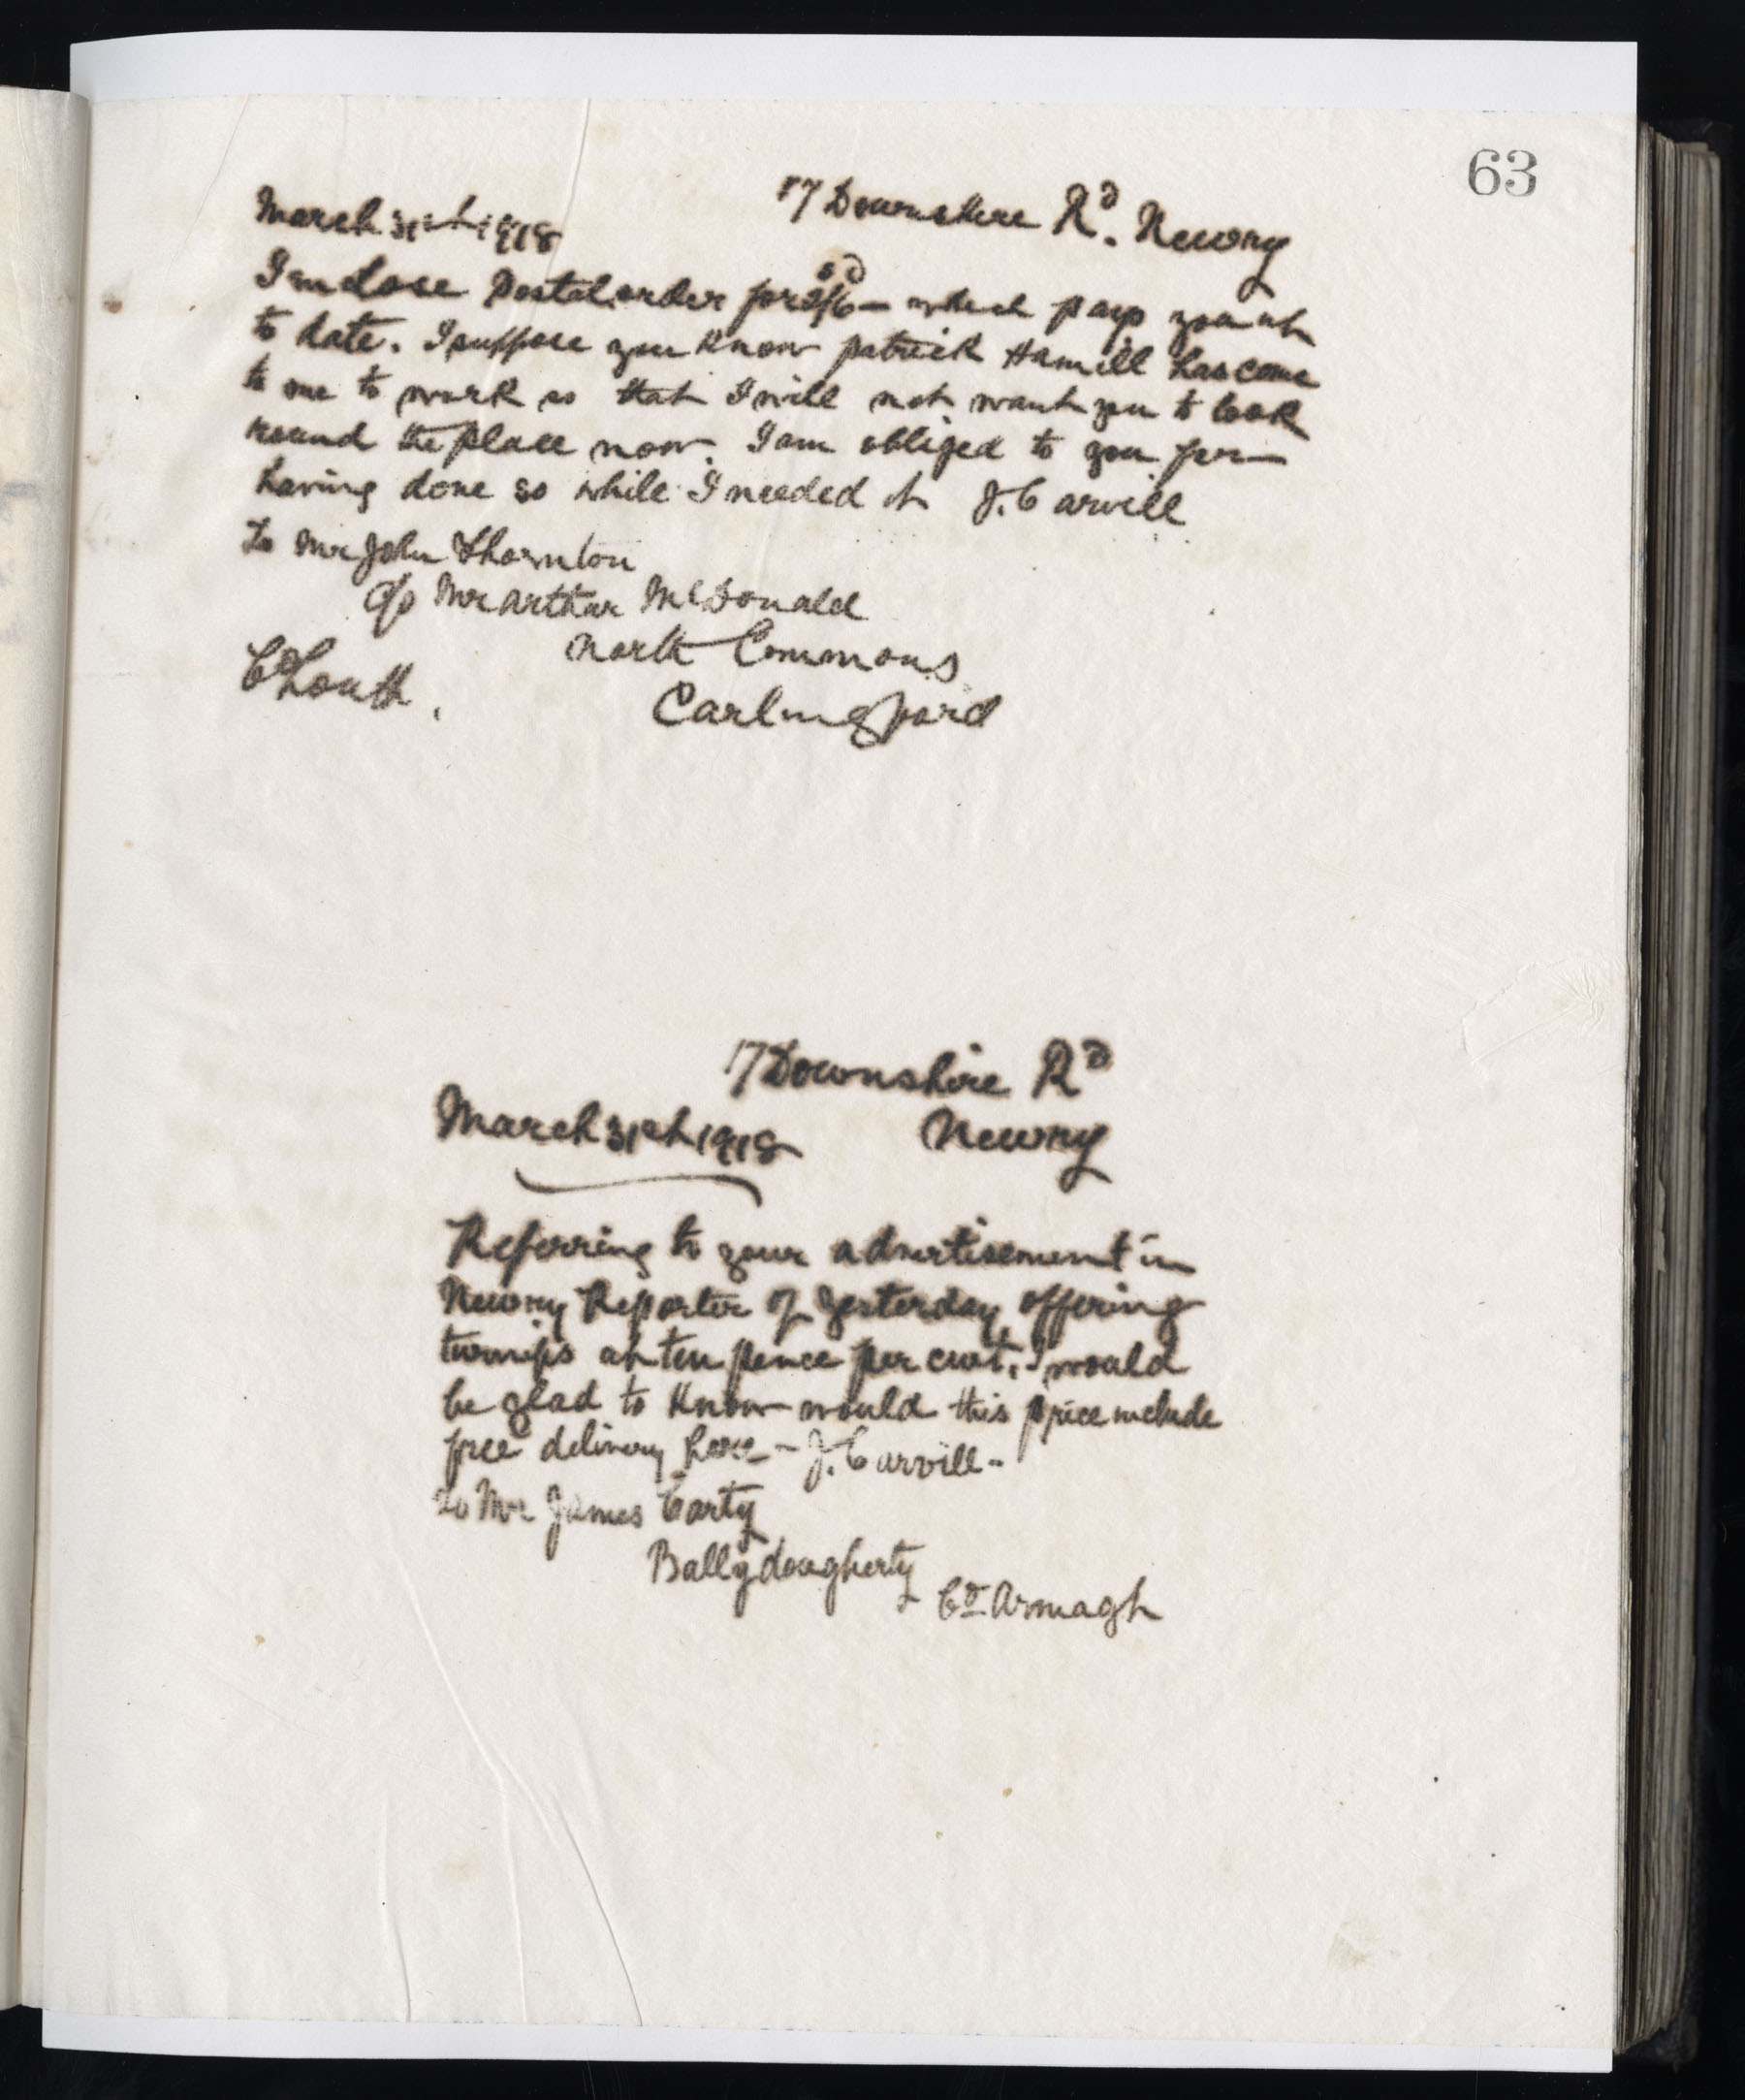 63
17 Downshire Rd. Newry
March 31st 1918
I enclose Postal order for 2s/6d - which pays you up
to date. I suppose you know patrick Hamill has come
to me to work so that I will not want you to look
round the place now. I am obliged to you for
having done so while I needed it J. Carvill
To Mr John Thornton
c/o Mr Arthur McDonald
North Commons
Co Louth.
Carlingford
17 Downshire Rd
March 31st 1918 Newry
Referring to your advertisement in
Newry Reporter of yesterday offering
turnips at ten pence per cwt. I would
be glad to know would this price include
free delivery here - J. Carvill -
To Mr James Carty
Ballydougherty
Co Armagh